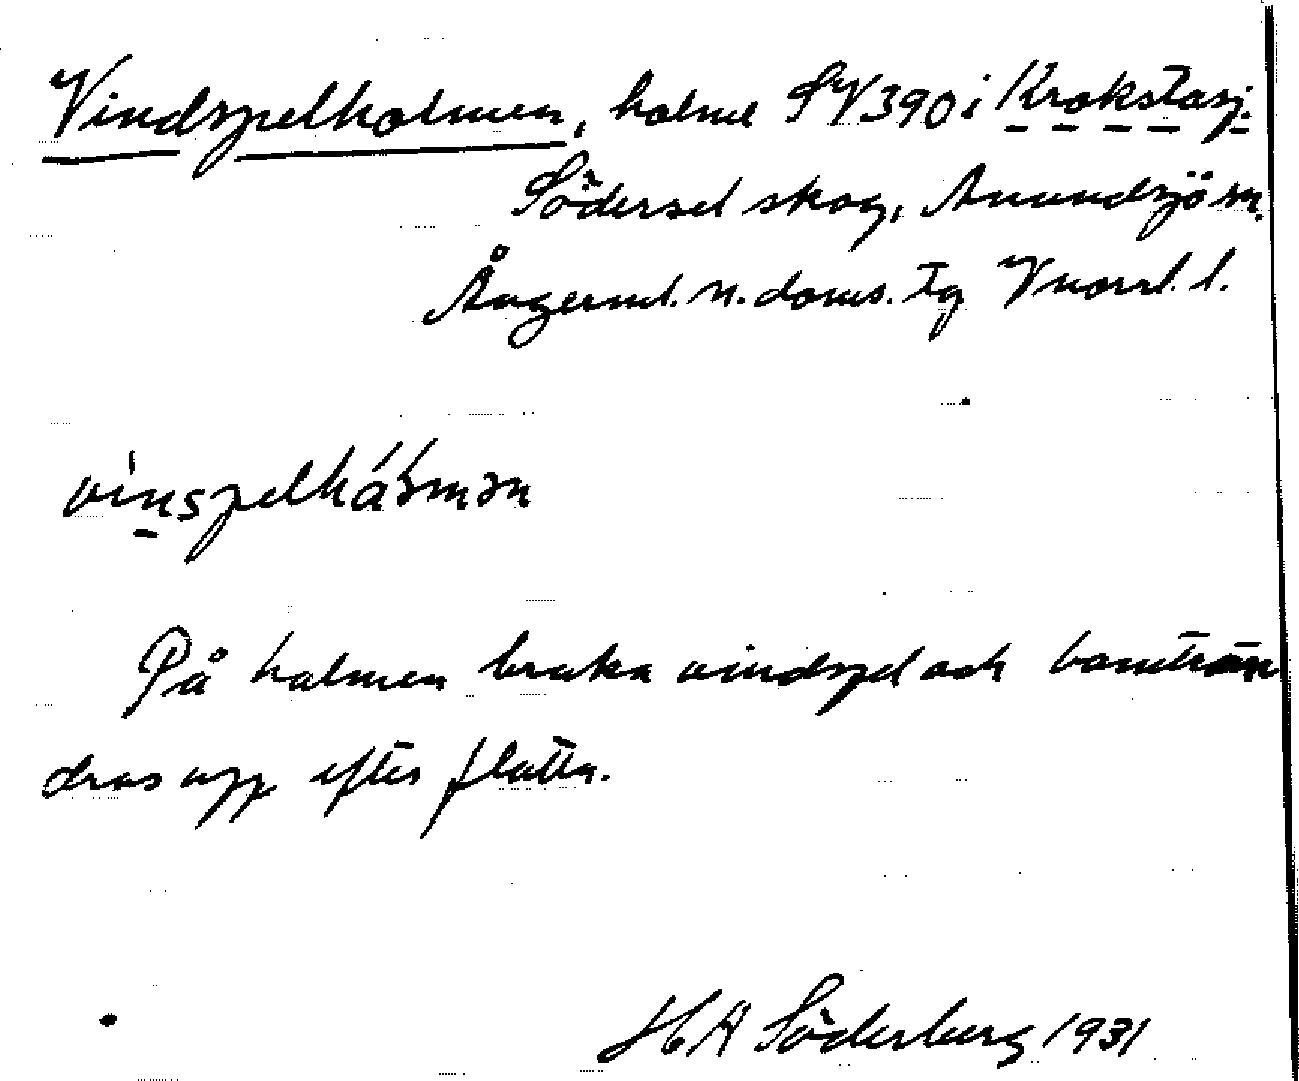 Vindspelholmen, holme SV390 i Krokstasj.
Södersel skog, Anundsjö sn.
Ångerml. n. doms. tg Vnorrl. l.
vinspelhåʹlmən
På holmen bruka vindspel och bomträn
dras upp efter flotta.
HA Söderberg 1931